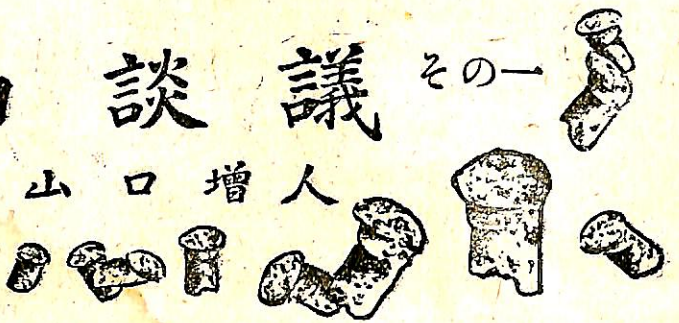 談議 その一
山口増人